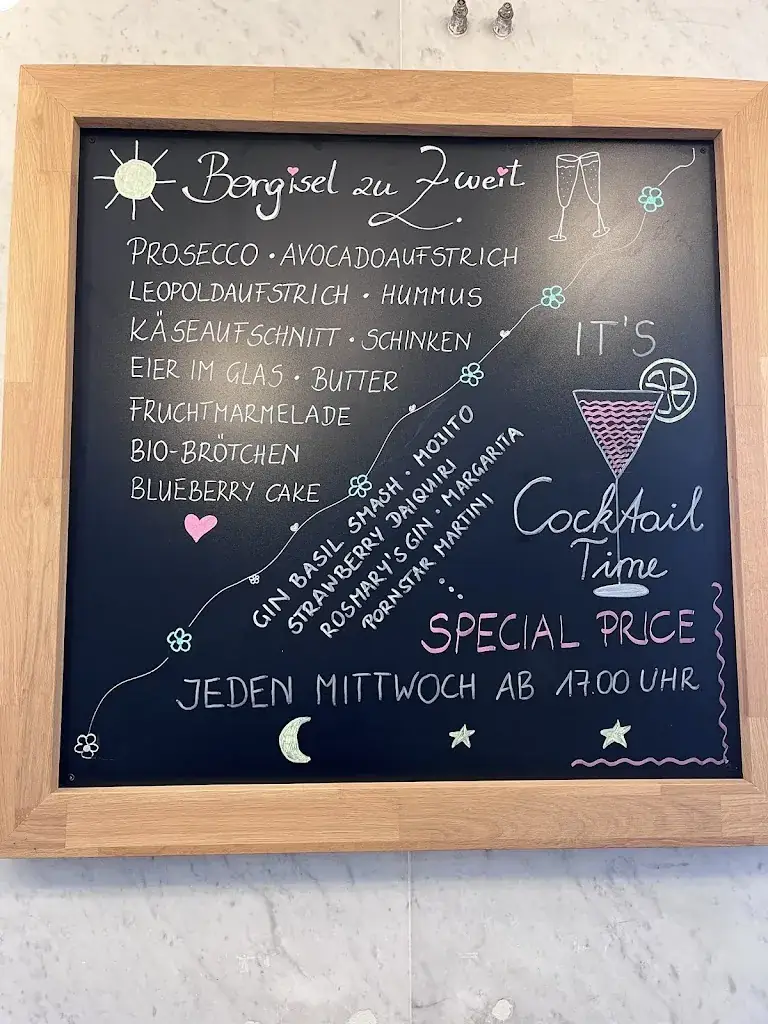 Bergisel zu Zweit
PROSECCO • AVOCADOAUFSTRICH
LEOPOLDAUFSTRICH • HUMMUS
KÄSEAUFSCHNITT • SCHINKEN
EIER IM GLAS • BUTTER
FRUCHTMARMELADE
BIO-BRÖTCHEN
BLUEBERRY CAKE
GIN BASIL SMASH • MOJITO
STRAWBERRY DAIQUIRI
ROSMARY'S GIN • MARGARITA
PORNSTAR MARTINI
...
IT'S
Cocktail
Time
SPECIAL PRICE
JEDEN MITTWOCH AB 17.00 UHR